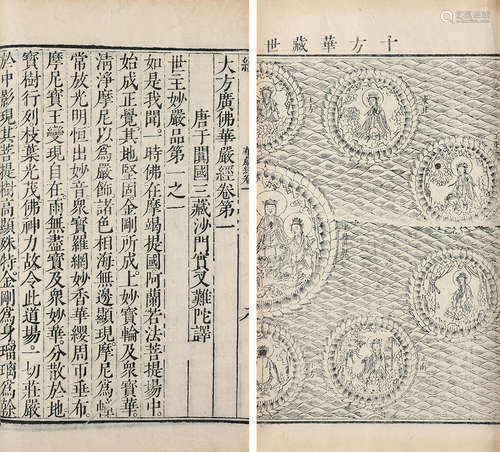 大方廣佛華嚴經卷第一
唐于闐國三藏沙門實叉難陀譯
世主妙嚴品第一之一
如是我聞一時佛在摩竭提國阿蘭若法菩提場中
始成正覺其地堅固金剛所成上妙寶輪及衆寶華
清淨摩尼以爲嚴飾諸色相海無邊顯現摩尼爲幢
常放光明恒出妙音衆寶羅網妙香華纓周帀垂布
摩尼寶王變現自在雨無盡寶及衆妙華分散於地
寶樹行列枝葉光茂佛神力故令此道場一切莊嚴
於中影現其菩提樹高顯殊特金剛爲身瑠璃爲榦
世藏華方十